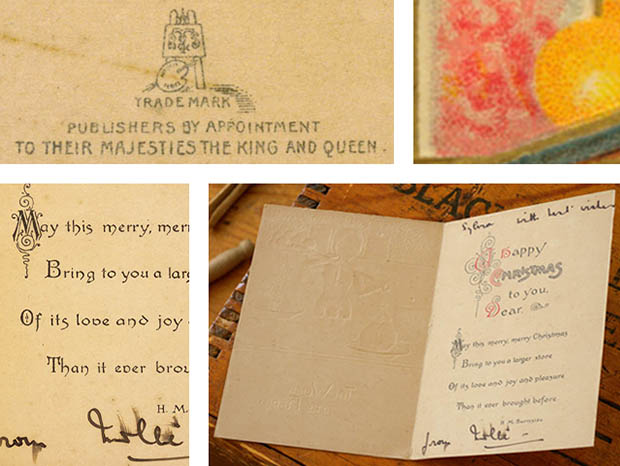 TRADE MARK
PUBLISHERS BY APPOINTMENT
TO THEIR MAJESTIES THE KING AND QUEEN.
May this merry, merr
Bring to you a larg
Of its love and joy
Than it ever brou
H. M.
from Mollie
BLAC
Sylvia with best wishes
A Happy
Christmas
to you,
Dear.
May this merry, merry Christmas
Bring to you a larger store
Of its love and joy and pleasure
Than it ever brought before
H. M. Burnside
from Mollie